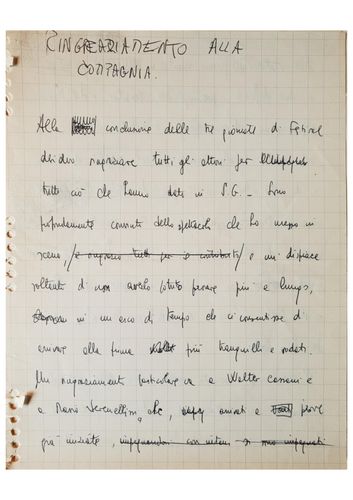 RINGRAZIAMENTO ALLA
COMPAGNIA.
Alla conclusione delle tre giornate di Festival
desidero ringraziare tutti gli attori per
tutto ciò che hanno dato in S.G. - Sono
profondamente commosso dello spettacolo che ho messo in
scena, /e ringrazio tutti per il contributo/ e mi dispiace
soltanto di non averlo potuto provare più a lungo,
in un arco di tempo che ci consentisse di
arrivare alla prima più tranquilli e rodati.
Un ringraziamento particolare va a Walter e
a Mario che, arrivati a prove
già iniziate,